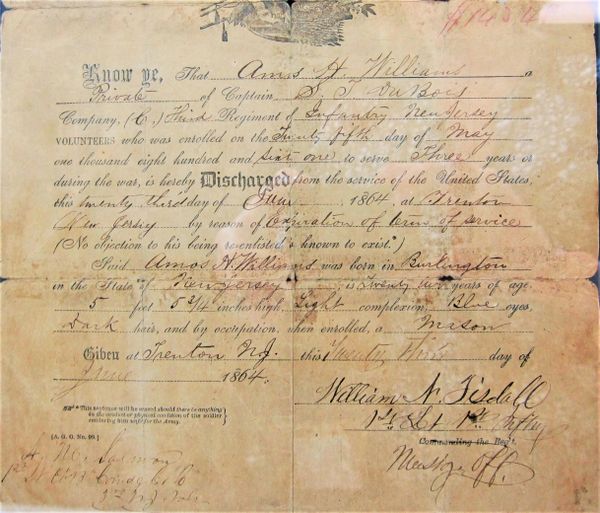 Know ye, That Amos H. Williams a
Private of Captain S. T. DuBois
Company, (C.) Third Regiment of Infantry New Jersey
VOLUNTEERS who was enrolled on the Twenty fifth day of May
one thousand eight hundred and Sixt one to serve Three years or
during the war, is hereby Discharged from the service of the United States,
this twenty third day of June, 1864, at Trenton
New Jersey by reason of Expiration of term of service
(No objection to his being reenlisted is known to exist.*)
Said Amos H. Williams was born in Burlington
in the State of New Jersey, is twenty two years of age,
5 feet 5 3/4 inches high, Light complexion, Blue eyes,
Dark hair, and by occupation, when enrolled, a Mason
Given at Trenton N.J. this Twenty Third day of
June 1864.
William N. Tisdall
1st Lt 1st Inftry
Commanding the Regt.
Mustg. Off.
*This sentence will be erased should there be anything
in the conduct or physical condition of the soldier
rendering him unfit for the Army.
[A. G. O. No. 99.]
M. Salmon
1st Lt Comdg Co
3rd N.J. Vols